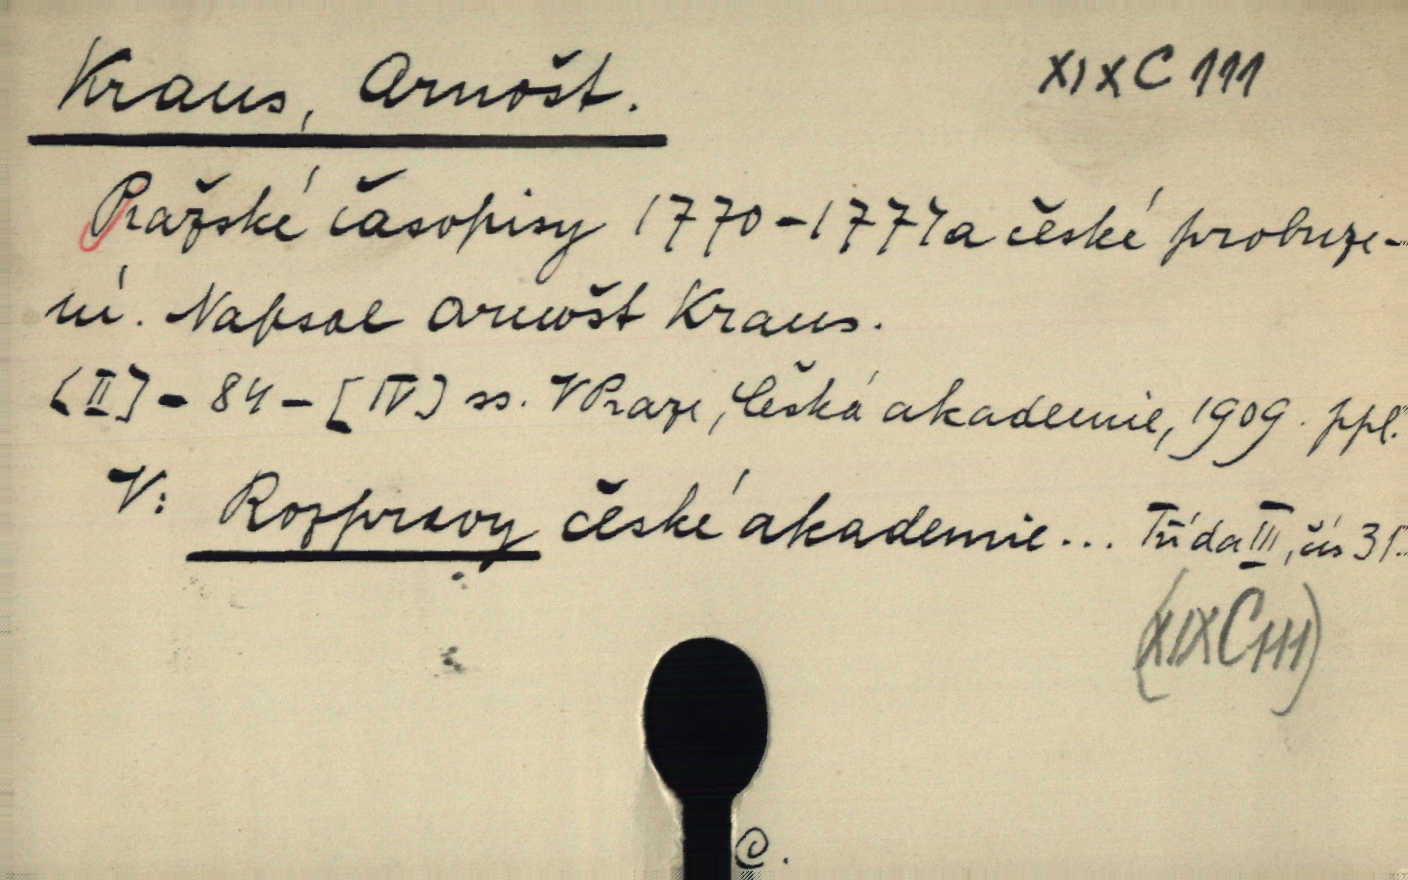 Kraus, Arnošt.
XIX C 111
Pražské časopisy 1770-1774 a české probuze-
ní. Napsal Arnošt Kraus.
[II] - 84 - [IV] ss. V Praze, Česká akademie, 1909. ppl.
V: Rozpravy české akademie... Třída III, čís 31.
(XIX C 111)